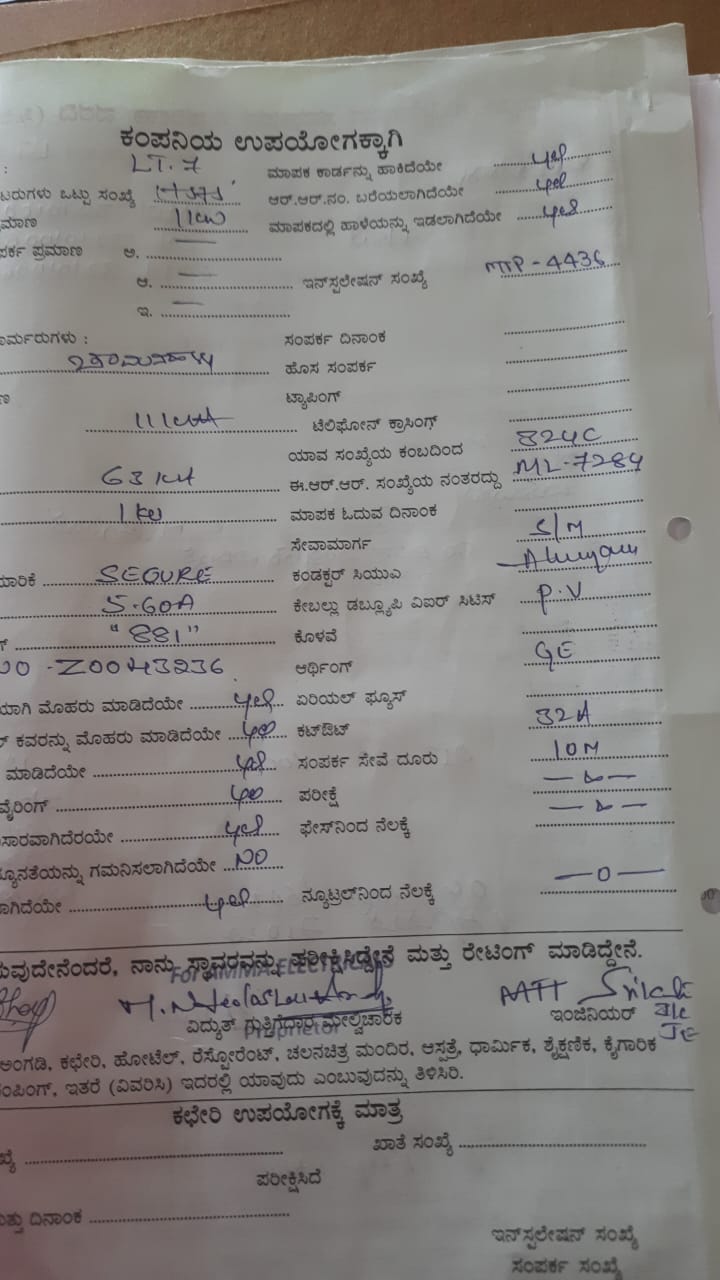 ಕಂಪನಿಯ ಉಪಯೋಗಕ್ಕಾಗಿ
LT. 7 ಮಾಪಕ ಕಾರ್ಡನ್ನು ಹಾಕಿದೆಯೇ yes
ಟರುಗಳು ಒಟ್ಟು ಸಂಖ್ಯೆ ಆರ್.ಆರ್.ನಂ. ಬರೆಯಲಾಗಿದೆಯೇ yes
ಮಾಣ 11KW ಮಾಪಕದಲ್ಲಿ ಹಾಳೆಯನ್ನು ಇಡಲಾಗಿದೆಯೇ yes
ಪರ್ಕ ಪ್ರಮಾಣ ಅ.
ಆ. ಇನ್‌ಸ್ಪಲೇಷನ್ ಸಂಖ್ಯೆ MTP-4436
ಇ.
ಾರ್ಮರುಗಳು : ಸಂಪರ್ಕ ದಿನಾಂಕ
ಹೊಸ ಸಂಪರ್ಕ
ಟ್ಯಾಪಿಂಗ್
11KVA ಟೆಲಿಫೋನ್ ಕ್ರಾಸಿಂಗ್
ಯಾವ ಸಂಖ್ಯೆಯ ಕಂಬದಿಂದ 324C
63 KVA ಈ.ಆರ್.ಆರ್. ಸಂಖ್ಯೆಯ ನಂತರದ್ದು ML-7284
1 KW ಮಾಪಕ ಓದುವ ದಿನಾಂಕ
ಸೇವಾಮಾರ್ಗ S/M
ಯಾರಿಕೆ SEGURE ಕಂಡಕ್ಟರ್ ಸಿಯುಎ
5-60A ಕೇಬಲ್ಲು ಡಬ್ಲ್ಯೂಪಿ ವಿಐರ್ ಸಿಟಿಸ್ P.V
"881" ಕೊಳವೆ
NO - Z0043236 ಆರ್ಥಿಂಗ್ GE
ಯಾಗಿ ಮೊಹರು ಮಾಡಿದೆಯೇ yes ಏರಿಯಲ್ ಫ್ಯೂಸ್
ಕವರನ್ನು ಮೊಹರು ಮಾಡಿದೆಯೇ yes ಕಟ್‌ಔಟ್ 32A
ಮಾಡಿದೆಯೇ yes ಸಂಪರ್ಕ ಸೇವೆ ದೂರು 10M
ವೈರಿಂಗ್ yes ಪರೀಕ್ಷೆ
ಸಾರವಾಗಿದೆರಯೇ yes ಫೇಸ್‌ನಿಂದ ನೆಲಕ್ಕೆ
ನ್ಯೂನತೆಯನ್ನು ಗಮನಿಸಲಾಗಿದೆಯೇ NO
ಾಗಿದೆಯೇ yes ನ್ಯೂಟ್ರಲ್‌ನಿಂದ ನೆಲಕ್ಕೆ —0—
ುವುದೇನೆಂದರೆ, ನಾನು ಸ್ಥಾವರವನ್ನು ಪರೀಕ್ಷಿಸಿದ್ದೇನೆ ಮತ್ತು ರೇಟಿಂಗ್ ಮಾಡಿದ್ದೇನೆ.
ವಿದ್ಯುತ್ ಗುತ್ತಿಗೆದಾರ ಮೇಲ್ವಿಚಾರಕ ಇಂಜಿನಿಯರ್
Proprietor
ಅಂಗಡಿ, ಕಛೇರಿ, ಹೋಟೆಲ್, ರೆಸ್ಟೋರೆಂಟ್, ಚಲನಚಿತ್ರ ಮಂದಿರ, ಆಸ್ಪತ್ರೆ, ಧಾರ್ಮಿಕ, ಶೈಕ್ಷಣಿಕ, ಕೈಗಾರಿಕ
ಂಪಿಂಗ್, ಇತರೆ (ವಿವರಿಸಿ) ಇದರಲ್ಲಿ ಯಾವುದು ಎಂಬುವುದನ್ನು ತಿಳಿಸಿರಿ.
ಕಛೇರಿ ಉಪಯೋಗಕ್ಕೆ ಮಾತ್ರ
ಖ್ಯೆ ಖಾತೆ ಸಂಖ್ಯೆ
ಪರೀಕ್ಷಿಸಿದೆ
ಮತ್ತು ದಿನಾಂಕ
ಇನ್‌ಸ್ಪಲೇಷನ್ ಸಂಖ್ಯೆ
ಸಂಪರ್ಕ ಸಂಖ್ಯೆ